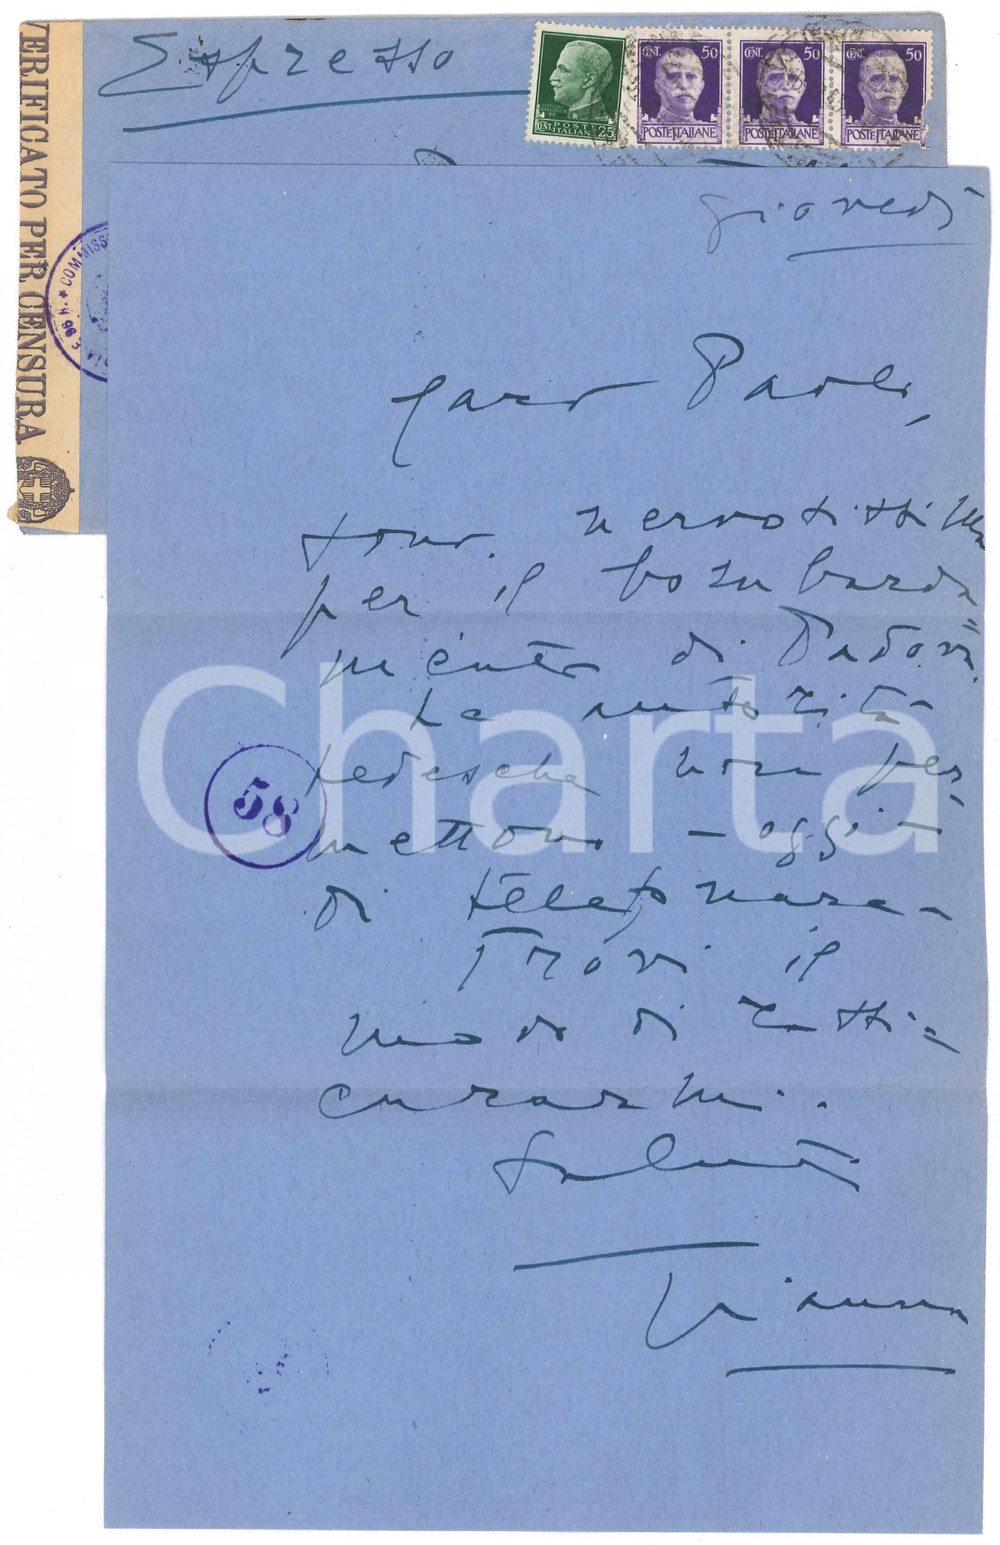 Espresso
CENT. 50
CENT. 50
CENT. 50
POSTE ITALIANE
POSTE ITALIANE
POSTE ITALIANE
POSTE
CENT. ITALIANE 25
VERIFICATO PER CENSURA
COMMISS
giovedì
Caro Paolo,
sono nervosissima
per il bombarda=
mento di Padova.
Le autorità
tedesche non per=
mettono - oggi -
di telefonare -
Trovi il
modo di rassi=
curarmi.
Saluti
Gianna
58
Charta